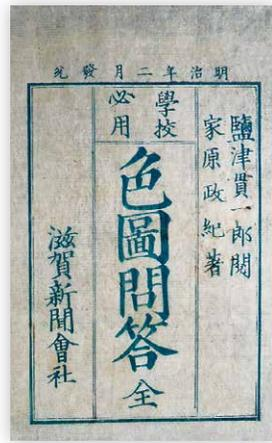 明治年二月發兌
鹽津貫一郎閲
家原政紀著
學校
必用
色圖問答 全
滋賀新聞會社